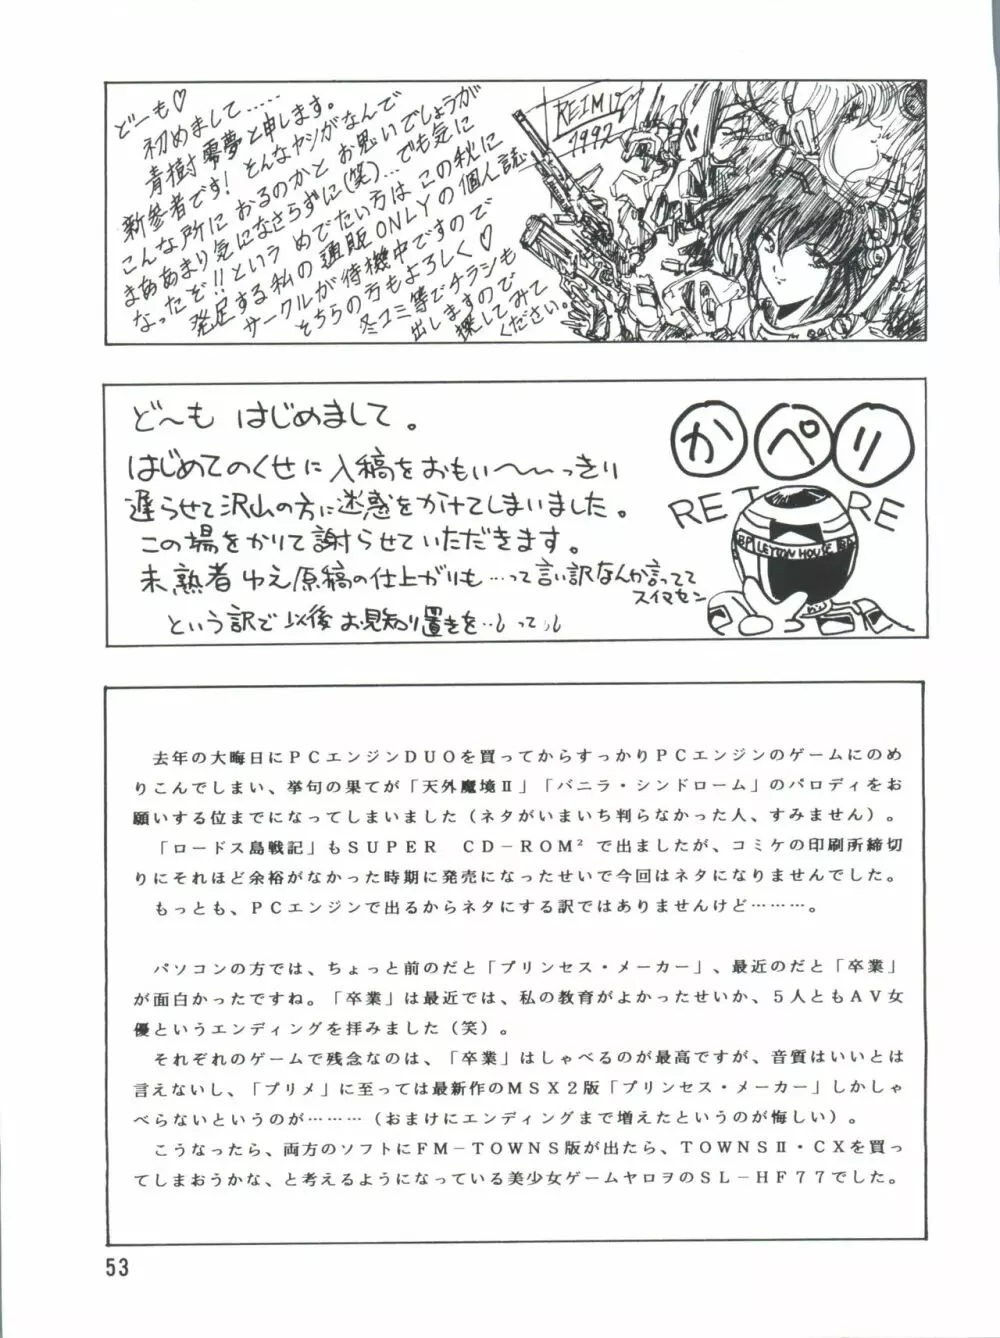 どーも♡
初めまして……
青樹零夢と申します。
新参者です! とんなヤツがなんで
こんな所に おるのかと お思いでしょうが
まああまり気になさらずに(笑)… でも気に
なったぞ!!という めでたい方は この秋に
発足する私の 通販ONLYの個人誌
サークルが待機中ですので
そちらの方もよろしく♡
冬コミ等でチラシも
出しますので
探してみて
ください。
REIM
1992
ど〜も はじめまして。
はじめてのくせに 入稿をおもい〜〜っきり
遅らせて沢山の方に迷惑をかけてしまいました。
この場をかりて謝らせていただきます。
未熟者ゆえ原稿の仕上がりも…って言い訳なんか言ってて
スイマセン
という訳で以後お見知り置きを
かペリ
RETIRE
BP LEYTON HOUSE BP
去年の大晦日にPCエンジンDUOを買ってからすっかりPCエンジンのゲームにのめ
りこんでしまい、挙句の果てが「天外魔境Ⅱ」「バニラ・シンドローム」のパロディをお
願いする位までになってしまいました(ネタがいまいち判らなかった人、すみません)。
「ロードス島戦記」もSUPER CD-ROM²で出ましたが、コミケの印刷所締切
りにそれほど余裕がなかった時期に発売になったせいで今回はネタになりませんでした。
もっとも、PCエンジンで出るからネタにする訳ではありませんけど………。
パソコンの方では、ちょっと前のだと「プリンセス・メーカー」、最近のだと「卒業」
が面白かったですね。「卒業」は最近では、私の教育がよかったせいか、5人ともAV女
優というエンディングを拝みました(笑)。
それぞれのゲームで残念なのは、「卒業」はしゃべるのが最高ですが、音質はいいとは
言えないし、「プリメ」に至っては最新作のMSX2版「プリンセス・メーカー」しかしゃ
べらないというのが………(おまけにエンディングまで増えたというのが悔しい)。
こうなったら、両方のソフトにFM-TOWNS版が出たら、TOWNSⅡ・CXを買っ
てしまおうかな、と考えるようになっている美少女ゲームヤロヲのSL-HF77でした。
53